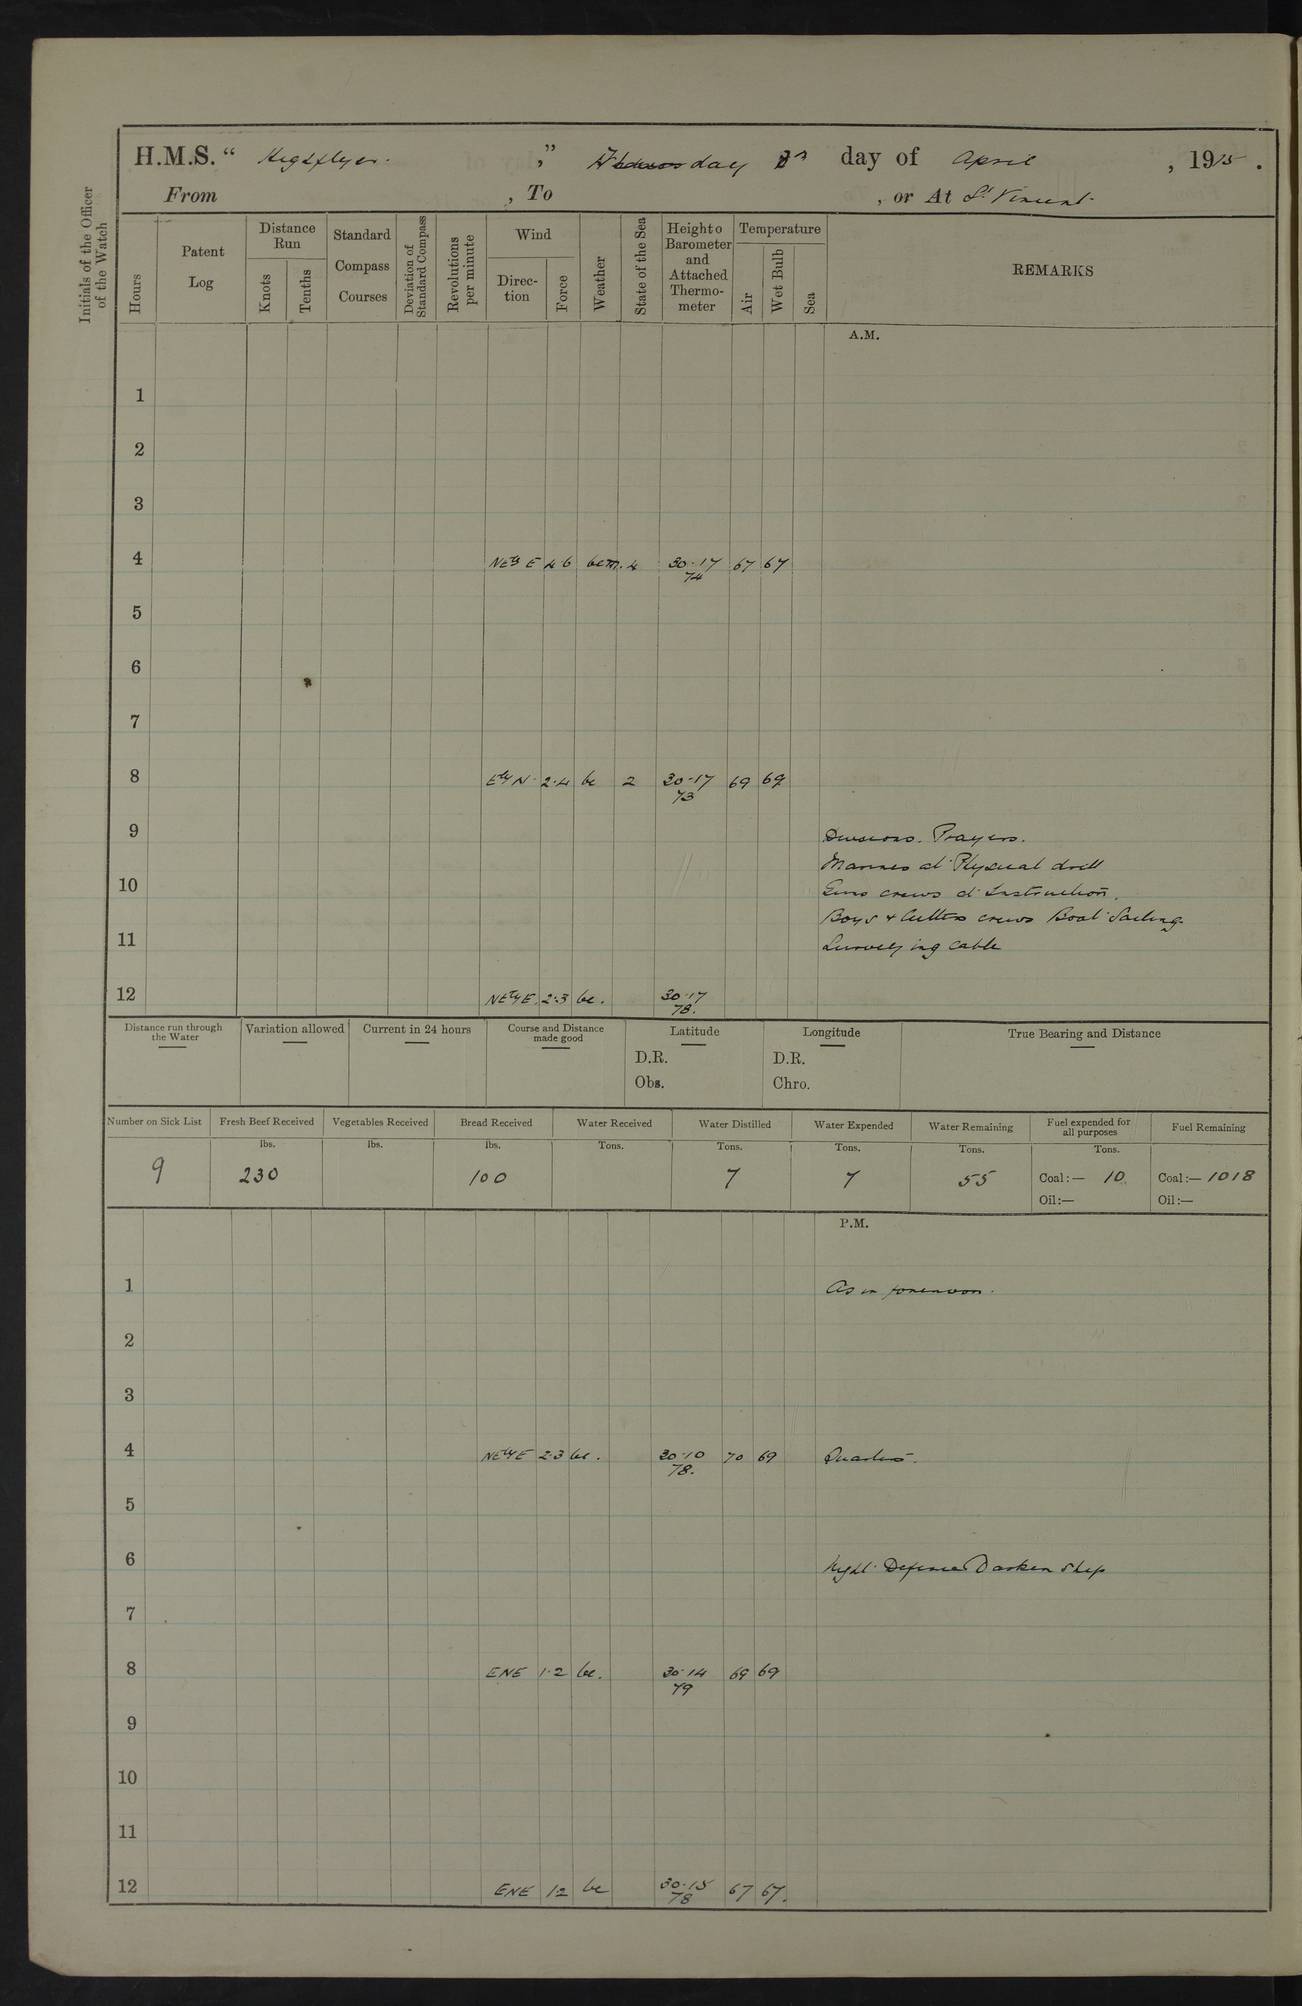 H.M.S. “ Highflyer. ,” day day of April , 1915 .
From , To , or At St Vincent
Initials of the Officer of the Watch
Hours
Patent Log
Distance Run
Knots
Tenths
Standard Compass Courses
Deviation of Standard Compass
Revolutions per minute
Wind
Direc- tion
Force
Weather
State of the Sea
Height o Barometer and Attached Thermo- meter
Temperature
Air
Wet Bulb
Sea
REMARKS
A.M.
1
2
3
4 NEly E 4.6 bcm. 4 30.17 67 67
74
5
6
7
8 Ely N 2.4 bc 2 30.17 69 69
73
9 Divisions. Prayers.
Marines at Physical drill
10 Guns crews at Instruction.
Boys & Cutters crews Boat Sailing.
11 Surveying Cable
12 NEly E. 2.3 bc. 30.17
78.
Distance run through the Water
Variation allowed
Current in 24 hours
Course and Distance made good
Latitude
D.R.
Obs.
Longitude
D.R.
Chro.
True Bearing and Distance
Number on Sick List Fresh Beef Received Vegetables Received Bread Received Water Received Water Distilled Water Expended Water Remaining Fuel expended for all purposes Fuel Remaining
lbs. lbs. lbs. Tons. Tons. Tons. Tons. Tons.
9 230 100 7 7 55 Coal:— 10 Coal:— 1018
Oil:— Oil:—
P.M.
1 As in forenoon.
2
3
4 NEly E 2.3 bc. 30.10 70 69 Quarters.
78.
5
6 Night Defence Darken Ship
7
8 ENE 1.2 bc. 30.14 69 69
79
9
10
11
12 ENE 12 bc 30.15 67 67.
78